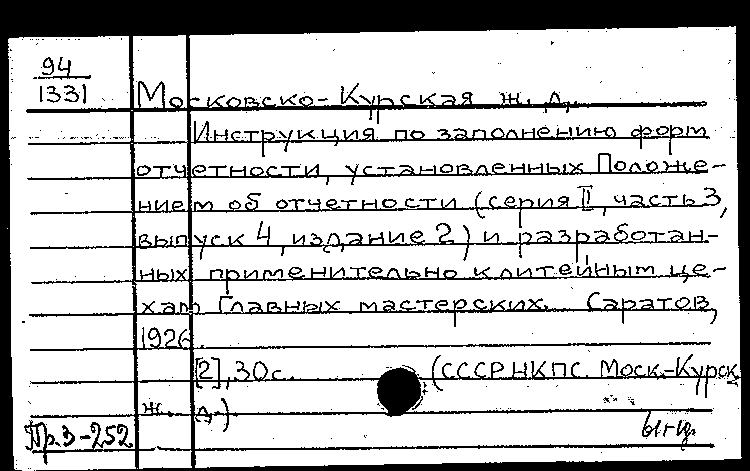 94
1331
Московско-Курская ж. д.
Инструкция по заполнению форм
отчетности, установленных Положе-
нием об отчетности (серия II, часть 3,
выпуск 4, издание 2) и разработан-
ных применительно к литейным це-
хам Главных мастерских. Саратов,
1926.
[2], 30 с. (СССР НКПС. Моск.-Курск.
ж. д.).
Пр.3-252